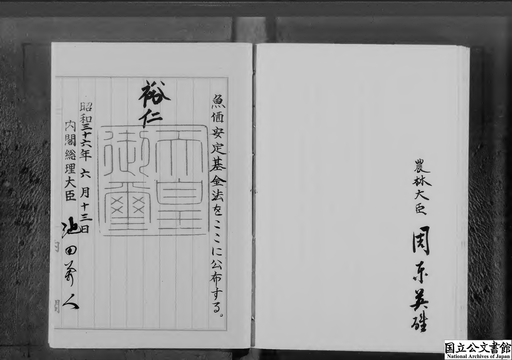 魚価安定基金法をここに公布する。
裕仁
天皇御璽
昭和三十六年六月十三日
内閣総理大臣 池田勇人
農林大臣 周東英雄
国立公文書館
National Archives of Japan